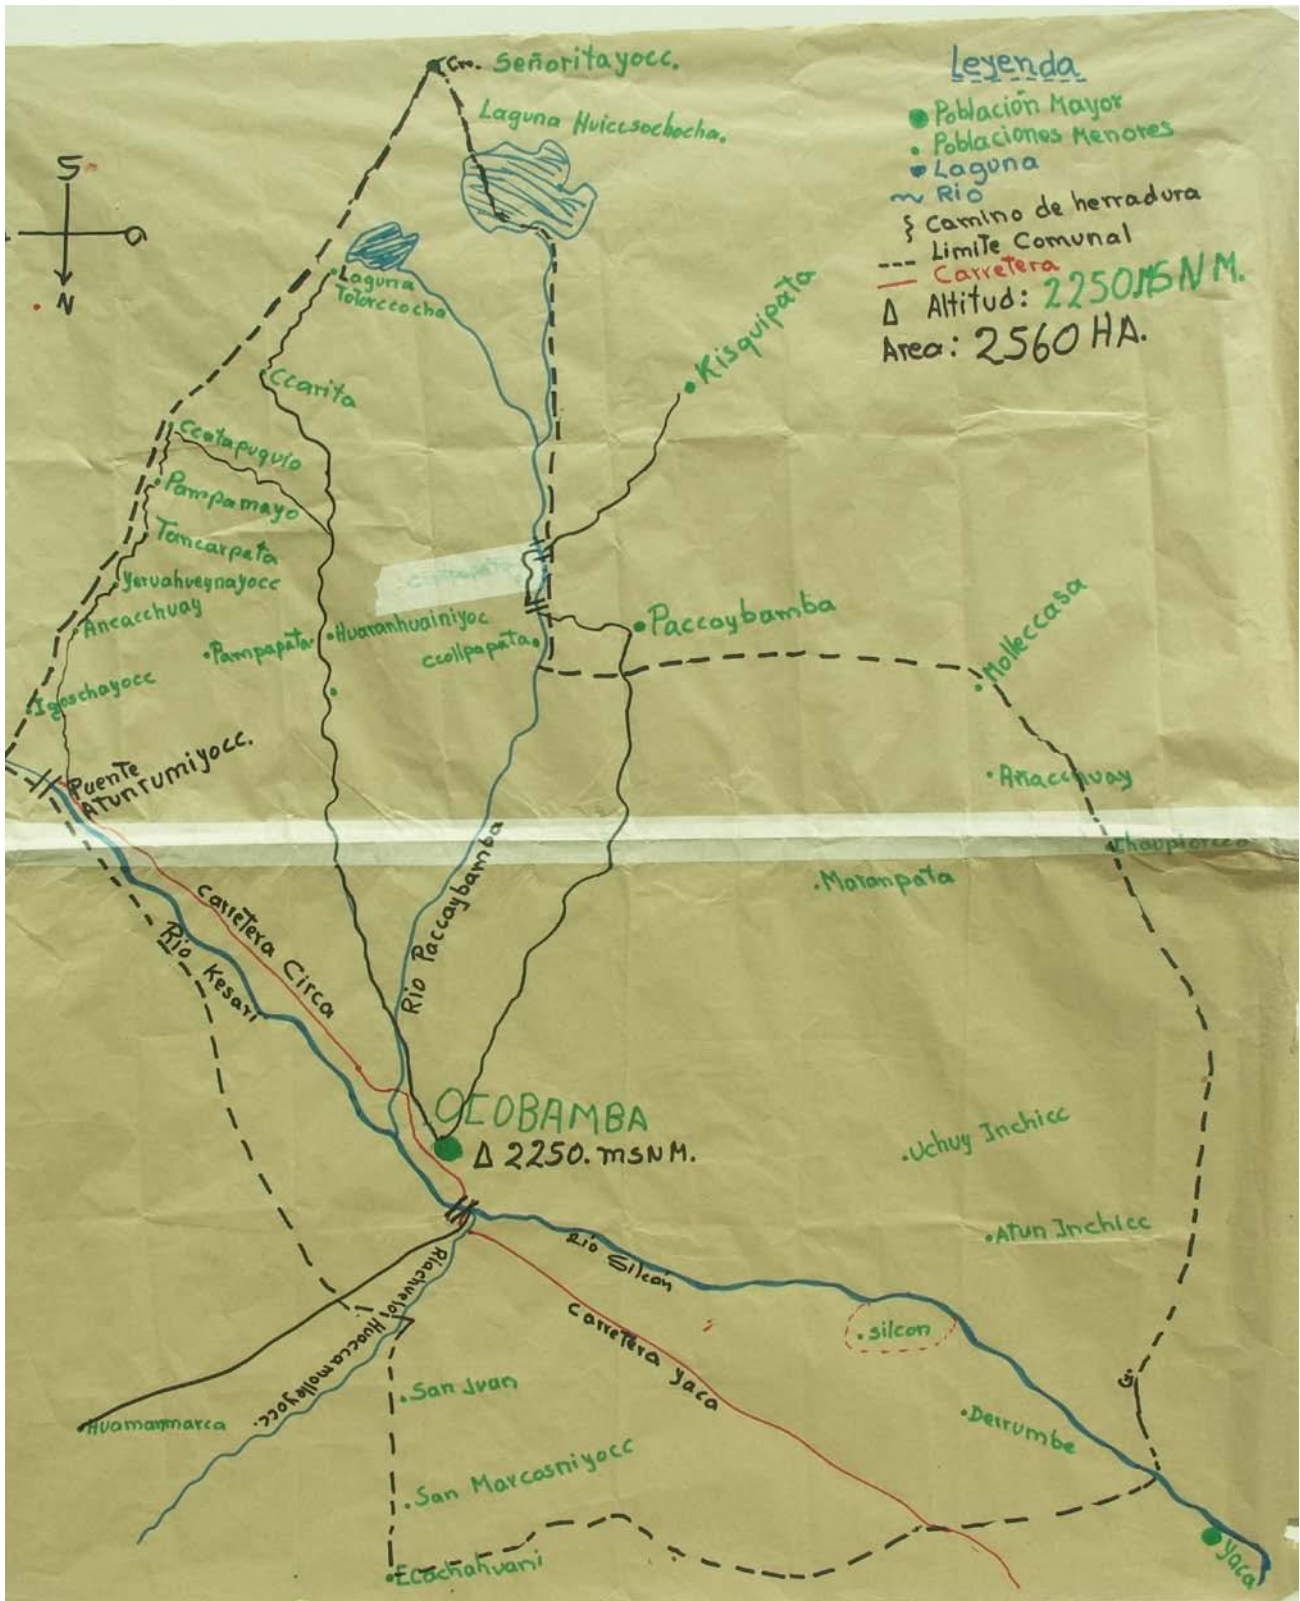 Cro. Señoritayocc.
Leyenda
Población Mayor
Poblaciones Menores
Laguna
Rio
Camino de herradura
Limite Comunal
Carretera
Δ Altitud: 2250 MSNM.
Area: 2560 HA.
Laguna Huiccsochocha.
S
O
N
Laguna
Totorccocha
Kisquipata
Ccarita
Ccatapuquio
Pampamayo
Tancarpata
Yeruahueynayocc
Ancacchuay
Pampapata
Huaranhuainiyoc
Ccollpapata
Paccaybamba
Molleccasa
Igoschayocc
Puente
Atunrumiyocc.
Añacchuay
Chaupiorcco
Maranpata
Carretera Circa
Rio Kesari
Rio Paccaybamba
OCOBAMBA
Δ 2250. msNM.
Uchuy Inchicc
Atun Inchicc
Rio Silcon
silcon
Carretera Yaca
Riachuelo Huaccamolleyocc.
San Juan
Huamanmarca
Derrumbe
San Marcosniyocc
Ccachahuani
Yaca